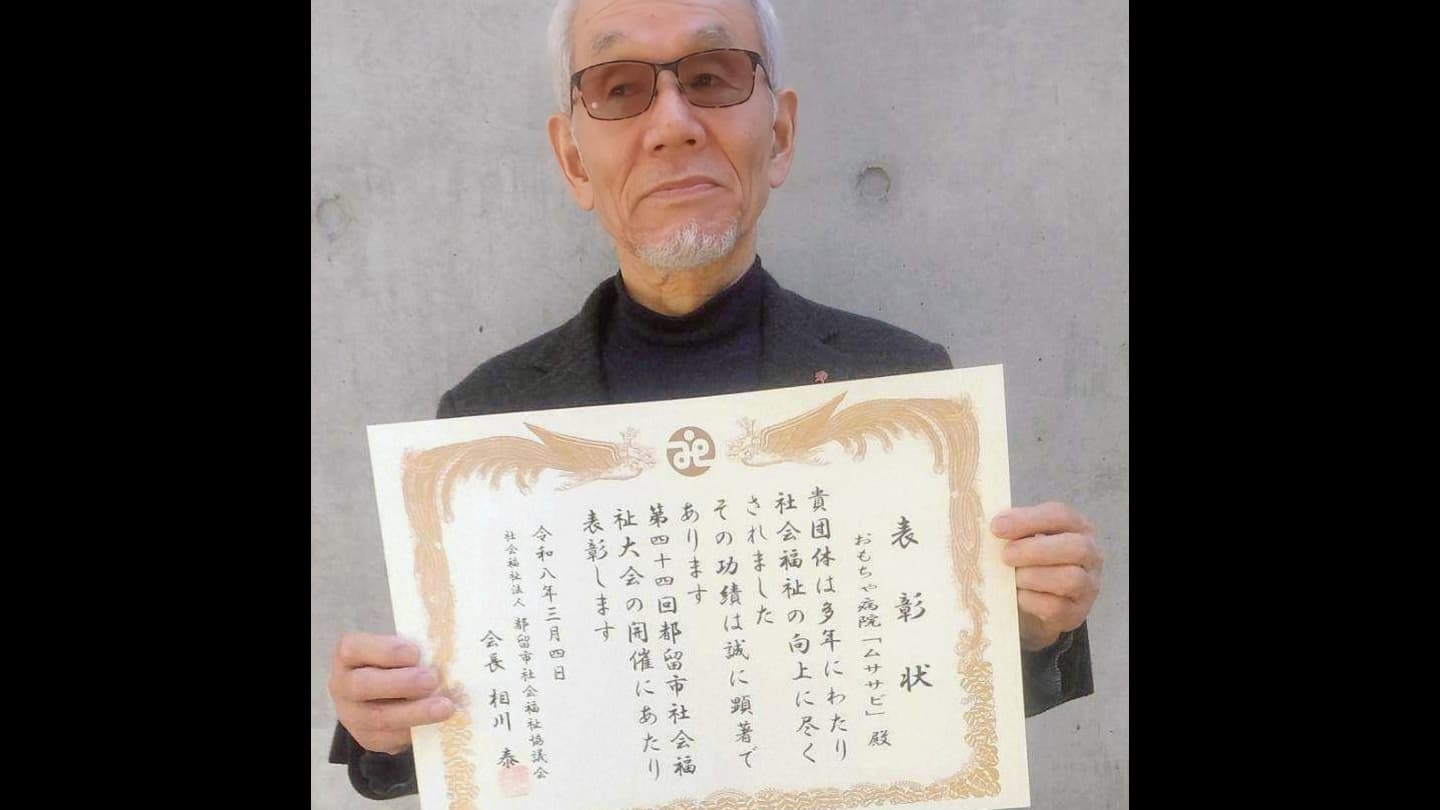 表彰状
おもちゃ病院「ムササビ」殿
貴団体は多年にわたり
社会福祉の向上に尽く
されました
その功績は誠に顕著で
あります
第四十四回都留市社会福
祉大会の開催にあたり
表彰します
令和八年三月四日
社会福祉法人 都留市社会福祉協議会
会長 相川 泰